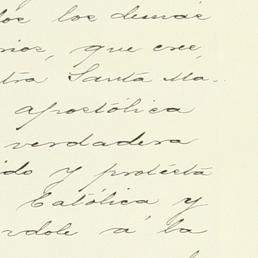 los los demás
rios, que cree,
tra Santa Ma-
apostólica
verdadera
ido y protésta
Católica y
ndole á la